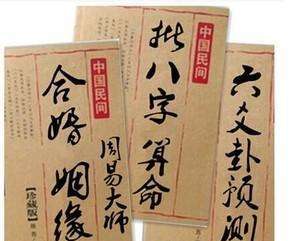 中国民间
合婚
姻缘
周易大师
【珍藏版】
中国民间
批八字算命
中国民间
六爻卦预测